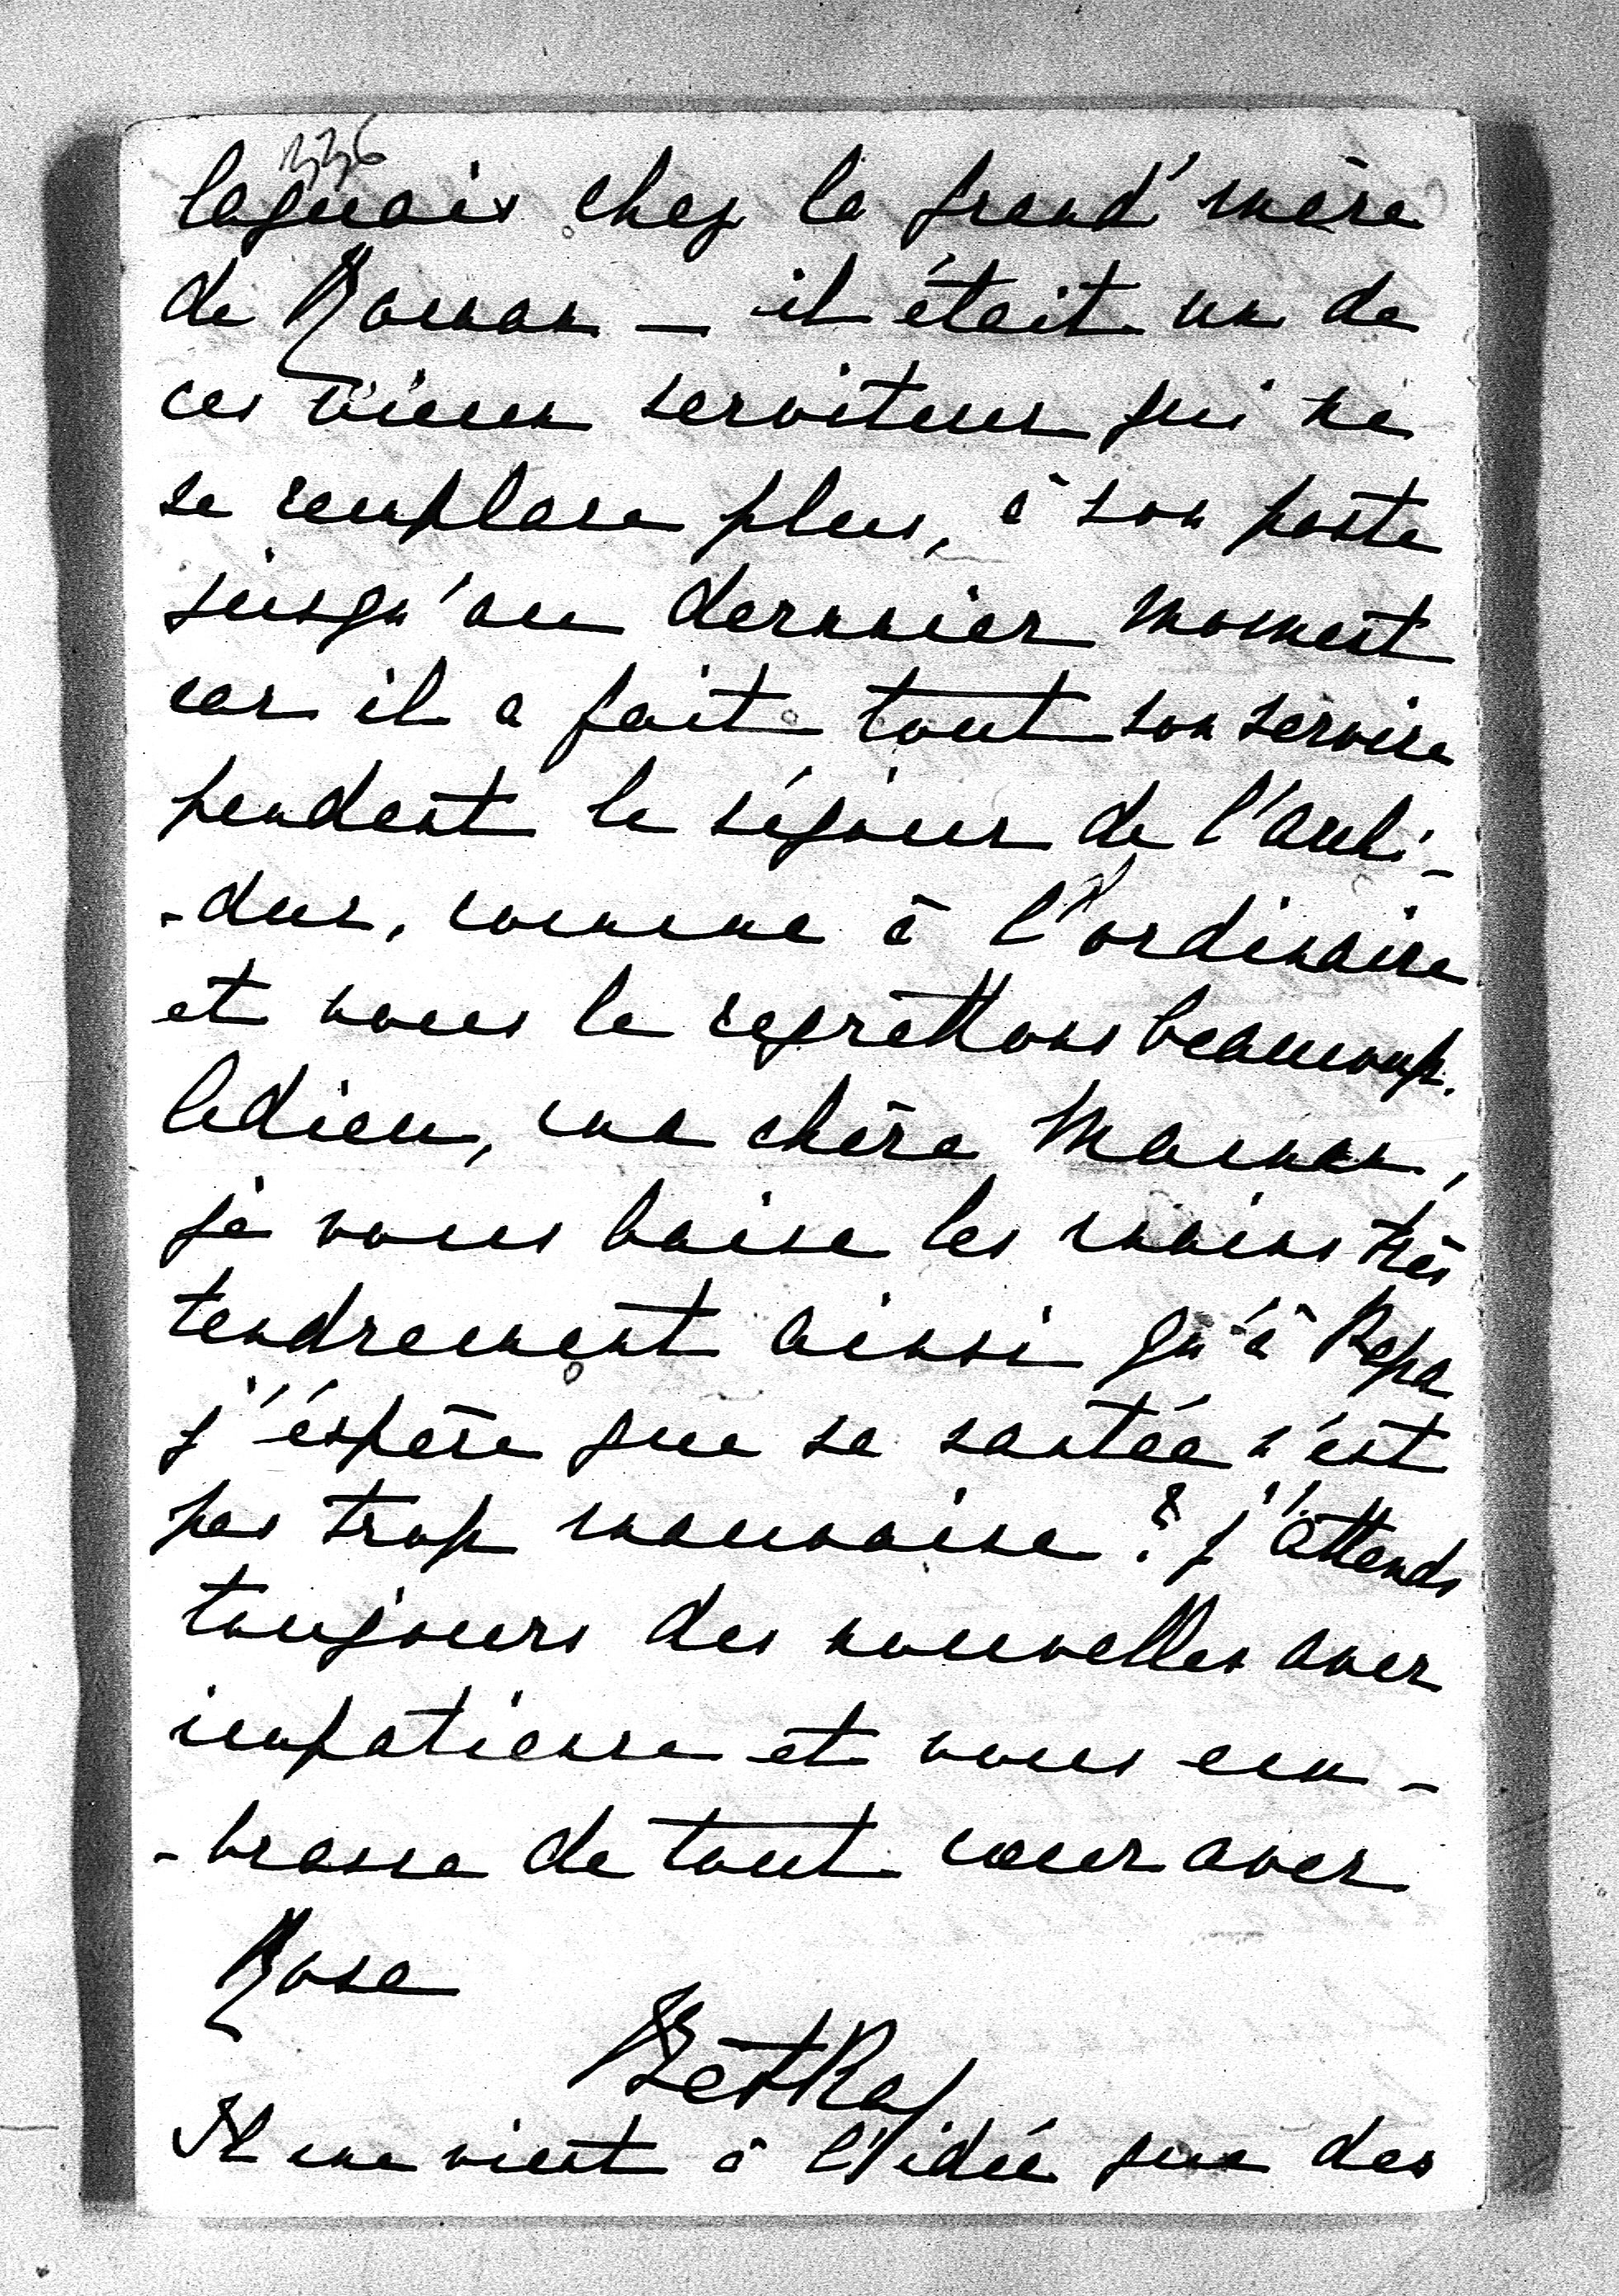 336
laquais chez la grand'mère
de Roman – il était un de
ces vieux serviteurs qui ne
se remplace plus, à son poste
jusqu'au dernnier moment
car il a fait tout son service
pendant le séjour de l'archi-
-duc, comme à l'ordinaire
et nous le regrettons beaucoup.
Adieu, ma chère Maman,
je vous baise les mains très
tendrement ainsi qu'à Papa
j'éspère que sa santée n'est
pas trop mauvaise? j'attends
toujours des nouvelles avec
impatience et vous em-
-brasse de tout cœur avec
Rose
BetKa
Il me vient à l'idée que des